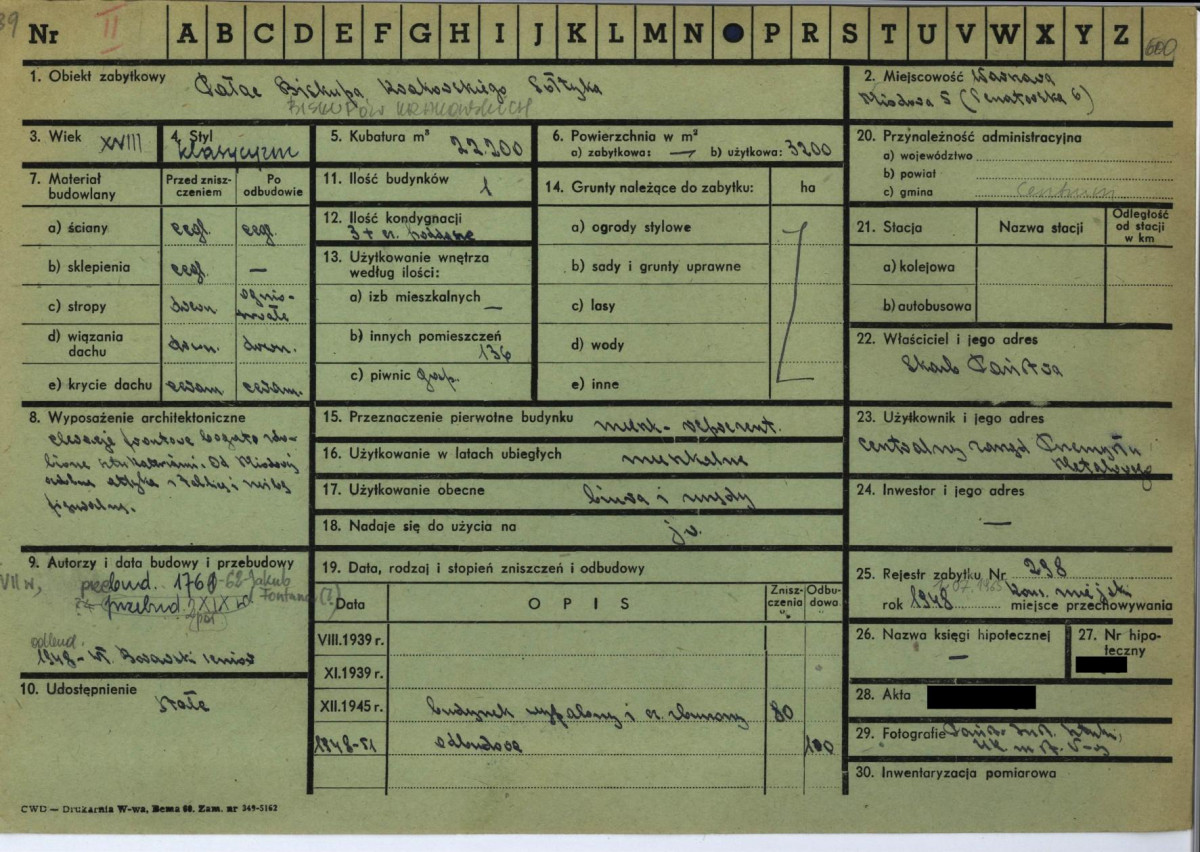 39
Nr II A B C D E F G H I J K L M N P R S T U V W X Y Z 600
1. Obiekt zabytkowy Pałac Biskupa Krakowskiego Sołtyka
BISKUPÓW KRAKOWSKICH
2. Miejscowość Warszawa
Miodowa 5 (Senatorska 6)
3. Wiek XVIII
4. Styl klasycyzm
5. Kubatura m³ 22.200
6. Powierzchnia w m²
a) zabytkowa: — b) użytkowa: 3200
7. Materiał budowlany
Przed zniszczeniem
Po odbudowie
a) ściany cegl. cegl.
b) sklepienia cegl. —
c) stropy drewn ogniotrwałe
d) wiązania dachu drewn. drewn.
e) krycie dachu ceram ceram.
8. Wyposażenie architektoniczne
elewacje frontowe bogato zdo-
bione sztukateriami. Od Miodowej
attyka
9. Autorzy i data budowy i przebudowy
VII w, przebud. 1760-62 Jakub
Fontana (?)
przebud. XIX w
odbud.
1948 - Borawski senior
10. Udostępnienie
stałe
11. Ilość budynków 1
12. Ilość kondygnacji
3 + cz. poddasze
13. Użytkowanie wnętrza
według ilości:
a) izb mieszkalnych —
b) innych pomieszczeń
136
c) piwnic gosp.
14. Grunty należące do zabytku: ha
a) ogrody stylowe
b) sady i grunty uprawne
c) lasy
d) wody
e) inne
15. Przeznaczenie pierwotne budynku mieszk- reprezent.
16. Użytkowanie w latach ubiegłych mieszkalne
17. Użytkowanie obecne biura i urzędy
18. Nadaje się do użycia na jw.
19. Data, rodzaj i stopień zniszczeń i odbudowy
Data OPIS Zniszczenia % Odbudowa %
VIII.1939 r.
XI.1939 r.
XII.1945 r. budynek wypalony i cz. zburzony 80
1948-51 odbudowa 100
20. Przynależność administracyjna
a) województwo
b) powiat
c) gmina Centrum
21. Stacja Nazwa stacji Odległość od stacji w km
a) kolejowa
b) autobusowa
22. Właściciel i jego adres
Skarb Państwa
23. Użytkownik i jego adres
Centralny Zarząd Przemysłu
Metalowego
24. Inwestor i jego adres
—
25. Rejestr zabytku Nr 298
1965
rok 1948 kons. miejski
miejsce przechowywania
26. Nazwa księgi hipotecznej
—
27. Nr hipoteczny
28. Akta
29. Fotografie Państ. Inst. Sztuki,
30. Inwentaryzacja pomiarowa
CWD — Drukarnia W-wa, Bema 60. Zam. nr 349-5162